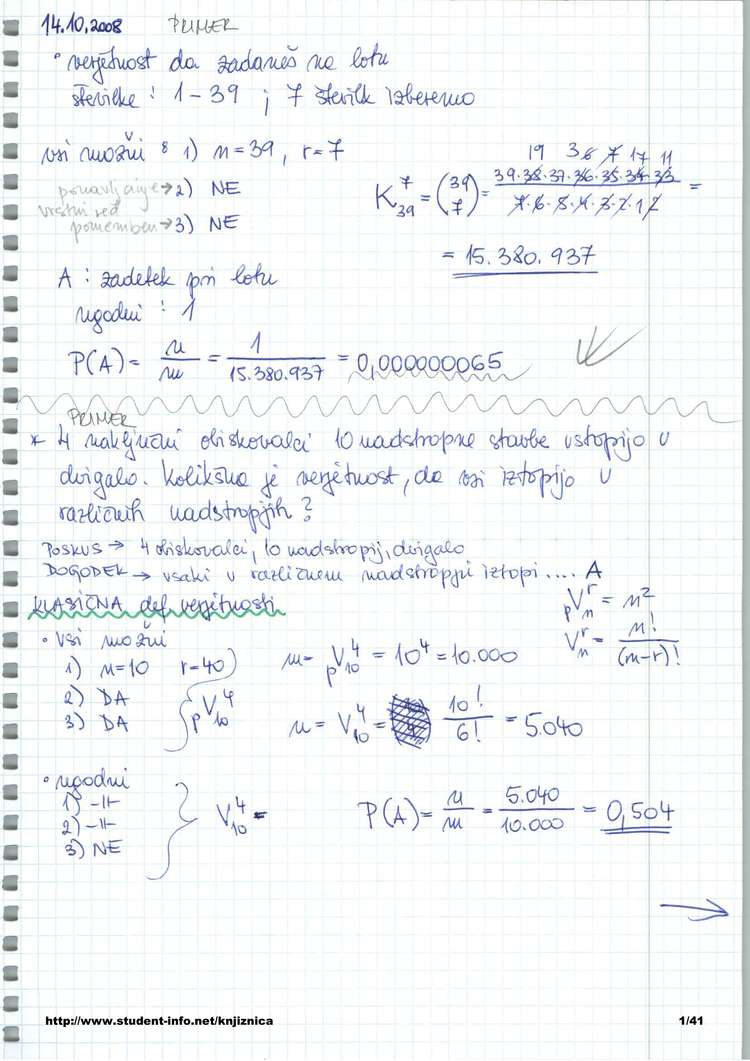 14.10.2008 PRIMER
• verjetnost da zadaneš na lotu
številke : 1 – 39 ; 7 številk izberemo
vsi možni : 1) n = 39, r = 7
ponavljanje → 2) NE
vrstni red
pomemben → 3) NE
19 36 7 17 11
K⁷₃₉ = (39 7) = 39·38·37·36·35·34·33 / 7·6·5·4·3·2·1 =
= 15.380.937
A : zadetek pri lotu
ugodni : 1
P(A) = n/m = 1/15.380.937 = 0,000000065
PRIMER
* 4 naključni obiskovalci 10 nadstropne stavbe vstopijo v
dvigalo. Kolikšna je verjetnost, da vsi iztopijo v
različnih nadstropjih?
POSKUS → 4 obiskovalci, 10 nadstropij, dvigalo
DOGODEK → vsaki v različnem nadstropju iztopi .... A
KLASIČNA def. verjetnosti
pVʳₙ = n²
Vʳₙ = n!/(n-r)!
• vsi možni
1) n=10 r=40
2) DA
3) DA
pV⁴₁₀
m = pV⁴₁₀ = 10⁴ = 10.000
n = V⁴₁₀ = 10!/6! = 5.040
• ugodni
1) -II-
2) -II-
3) NE
V⁴₁₀ =
P(A) = n/m = 5.040/10.000 = 0,504
http://www.student-info.net/knjiznica 1/41